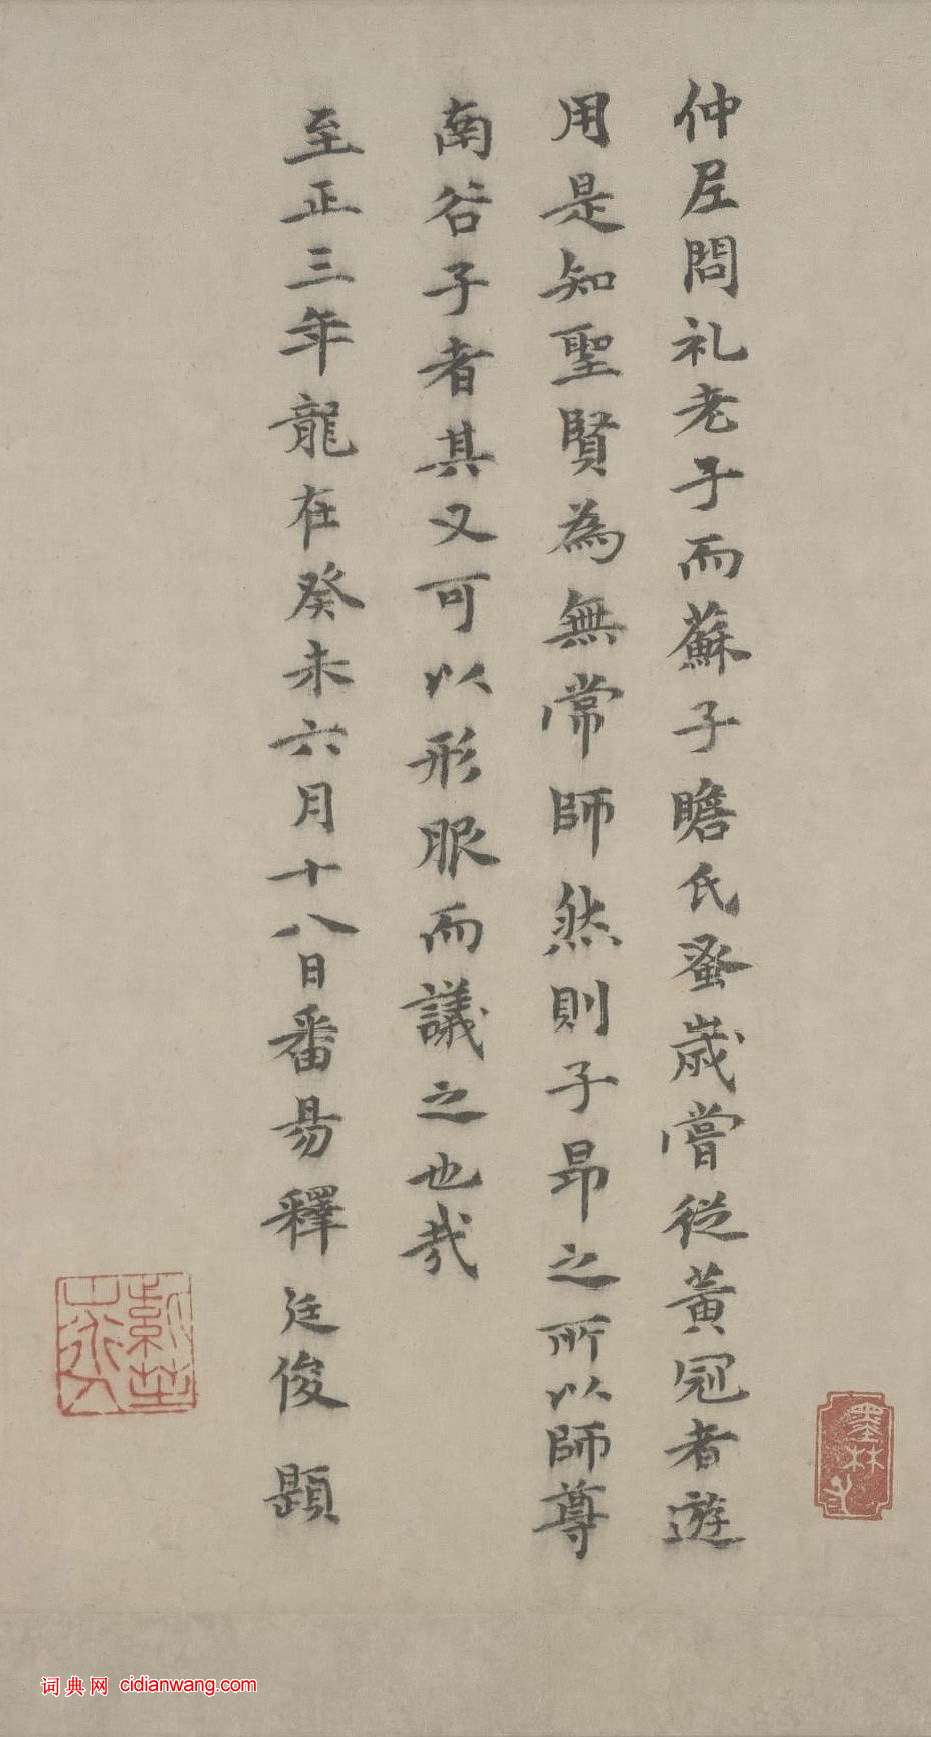 仲尼問礼老子而蘇子瞻氏蚤歲嘗從黃冠者遊
用是知聖賢為無常師然則子昂之所以師尊
南谷子者其又可以形服而議之也哉
至正三年龍在癸未六月十八日番昜釋廷俊題
墨林
词典网 cidianwang.com